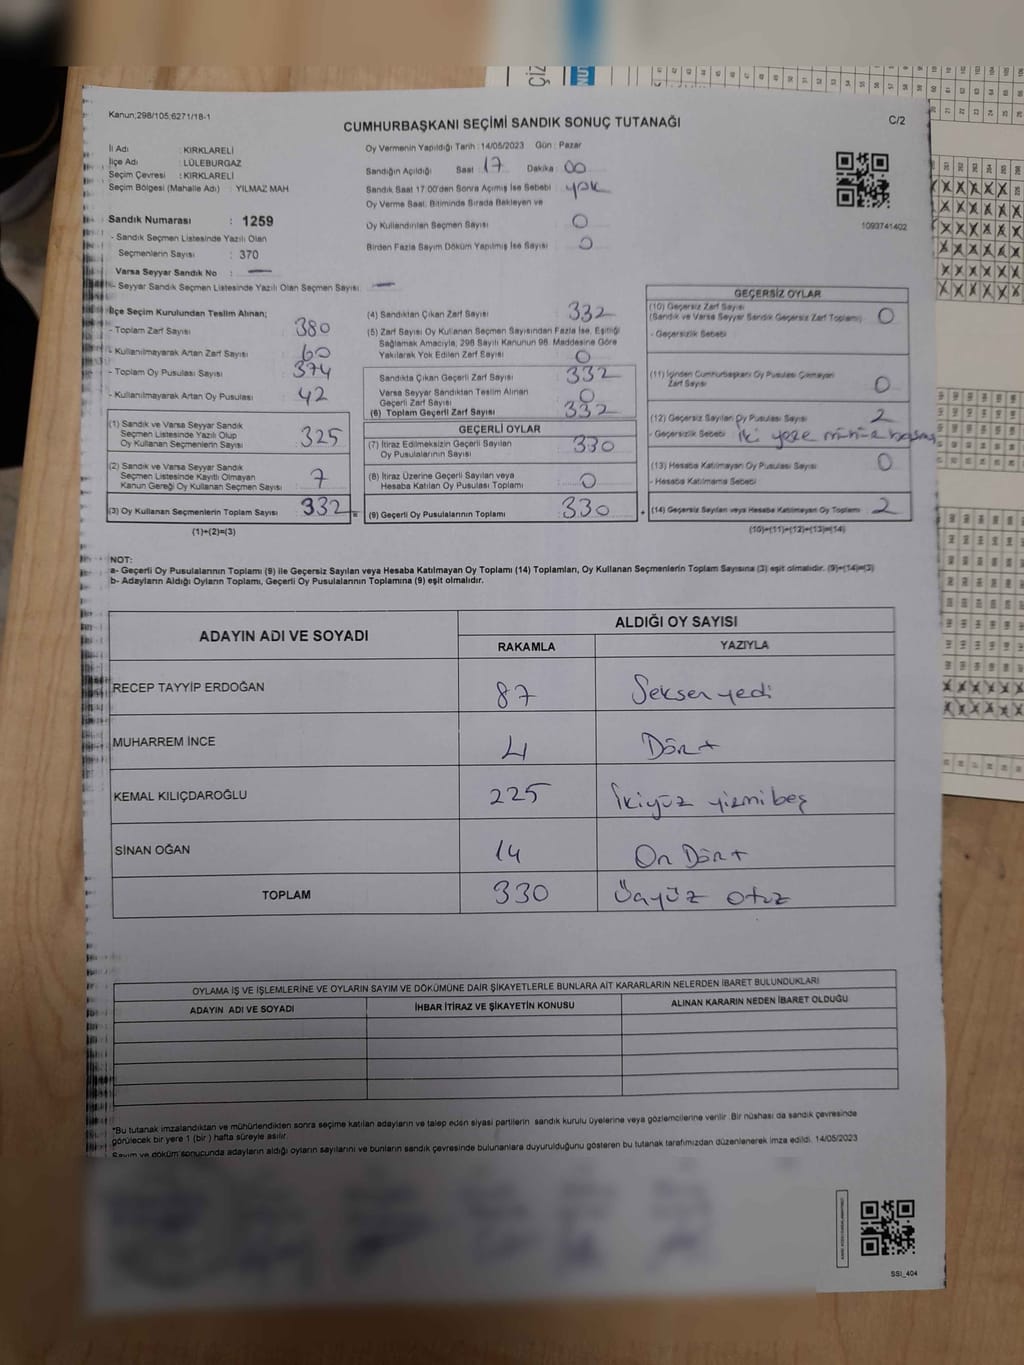 Kanun;298/105;6271/18-1
CUMHURBAŞKANI SEÇİMİ SANDIK SONUÇ TUTANAĞI
C/2
İl Adı : KIRKLARELİ
İlçe Adı : LÜLEBURGAZ
Seçim Çevresi : KIRKLARELİ
Seçim Bölgesi (Mahalle Adı) : YILMAZ MAH
Sandık Numarası : 1259
- Sandık Seçmen Listesinde Yazılı Olan
Seçmenlerin Sayısı : 370
Varsa Seyyar Sandık No : —
- Seyyar Sandık Seçmen Listesinde Yazılı Olan Seçmen Sayısı: —
Oy Vermenin Yapıldığı Tarih : 14/05/2023 Gün : Pazar
Sandığın Açıldığı Saat : 17 Dakika : 00
Sandık Saat 17:00'den Sonra Açımış İse Sebebi : yok
Oy Verme Saati Bitiminde Sırada Bekleyen ve
Oy Kullandırılan Seçmen Sayısı : 0
Birden Fazla Sayım Döküm Yapılmış İse Sayısı : 0
1093741402
İlçe Seçim Kurulundan Teslim Alınan;
- Toplam Zarf Sayısı : 380
- Kullanılmayarak Artan Zarf Sayısı : 60
- Toplam Oy Pusulası Sayısı : 374
- Kullanılmayarak Artan Oy Pusulası : 42
(1) Sandık ve Varsa Seyyar Sandık
Seçmen Listesinde Yazılı Olup
Oy Kullanan Seçmenlerin Sayısı : 325
(2) Sandık ve Varsa Seyyar Sandık
Seçmen Listesinde Kayıtlı Olmayan
Kanun Gereği Oy Kullanan Seçmen Sayısı : 7
(3) Oy Kullanan Seçmenlerin Toplam Sayısı : 332
(1)+(2)=(3)
(4) Sandıktan Çıkan Zarf Sayısı : 332
(5) Zarf Sayısı Oy Kullanan Seçmen Sayısından Fazla İse, Eşitliği
Sağlamak Amacıyla, 298 Sayılı Kanunun 98. Maddesine Göre
Yakılarak Yok Edilen Zarf Sayısı : 0
Sandıkta Çıkan Geçerli Zarf Sayısı : 332
Varsa Seyyar Sandıktan Teslim Alınan
Geçerli Zarf Sayısı : 0
(6) Toplam Geçerli Zarf Sayısı : 332
GEÇERLİ OYLAR
(7) İtiraz Edilmeksizin Geçerli Sayılan
Oy Pusulalarının Sayısı : 330
(8) İtiraz Üzerine Geçerli Sayılan veya
Hesaba Katılan Oy Pusulası Toplamı : 0
(9) Geçerli Oy Pusulalarının Toplamı : 330
GEÇERSİZ OYLAR
(10) Geçersiz Zarf Sayısı
(Sandık ve Varsa Seyyar Sandık Geçersiz Zarf Toplamı) : 0
- Geçersizlik Sebebi
(11) İçinden Cumhurbaşkanı Oy Pusulası Çıkmayan
Zarf Sayısı : 0
(12) Geçersiz Sayılan Oy Pusulası Sayısı : 2
- Geçersizlik Sebebi : iki yere
(13) Hesaba Katılmayan Oy Pusulası Sayısı : 0
- Hesaba Katılmama Sebebi
(14) Geçersiz Sayılan veya Hesaba Katılmayan Oy Toplamı : 2
(10)+(11)+(12)+(13)=(14)
NOT:
a- Geçerli Oy Pusulalarının Toplamı (9) ile Geçersiz Sayılan veya Hesaba Katılmayan Oy Toplamı (14) Toplamları, Oy Kullanan Seçmenlerin Toplam Sayısına (3) eşit olmalıdır. (9)+(14)=(3)
b- Adayların Aldığı Oyların Toplamı, Geçerli Oy Pusulalarının Toplamına (9) eşit olmalıdır.
ADAYIN ADI VE SOYADI
ALDIĞI OY SAYISI
RAKAMLA YAZIYLA
RECEP TAYYİP ERDOĞAN 87 Seksen yedi
MUHARREM İNCE 4 Dört
KEMAL KILIÇDAROĞLU 225 İkiyüz yirmi beş
SİNAN OĞAN 14 On Dört
TOPLAM 330 Üçyüz otuz
OYLAMA İŞ VE İŞLEMLERİNE VE OYLARIN SAYIM VE DÖKÜMÜNE DAİR ŞİKAYETLERLE BUNLARA AİT KARARLARIN NELERDEN İBARET BULUNDUKLARI
ADAYIN ADI VE SOYADI İHBAR İTİRAZ VE ŞİKAYETİN KONUSU ALINAN KARARIN NEDEN İBARET OLDUĞU
*Bu tutanak imzalandıktan ve mühürlendikten sonra seçime katılan adayların ve talep eden siyasi partilerin sandık kurulu üyelerine veya gözlemcilerine verilir. Bir nüshası da sandık çevresinde
görülecek bir yere 1 (bir) hafta süreyle asılır.
Sayım ve döküm sonucunda adayların aldığı oyların sayılarını ve bunların sandık çevresinde bulunanlara duyurulduğunu gösteren bu tutanak tarafımızdan düzenlenerek imza edildi. 14/05/2023
SSI_404